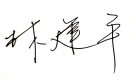 林建平